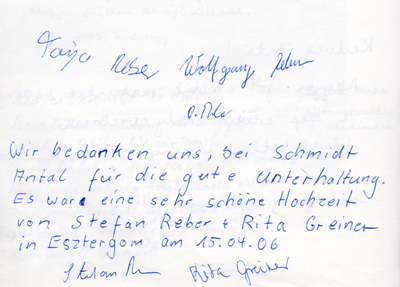 Tanja Reber Wolfgang Reber
Wir bedanken uns, bei Schmidt
Antal für die gute Unterhaltung.
Es war eine sehr schöne Hochzeit
von Stefan Reber + Rita Greiner
in Esztergom am 15.04.06
Stefan Rita Greiner